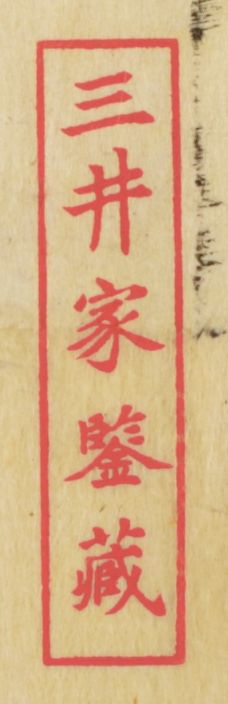 三井家鑒藏